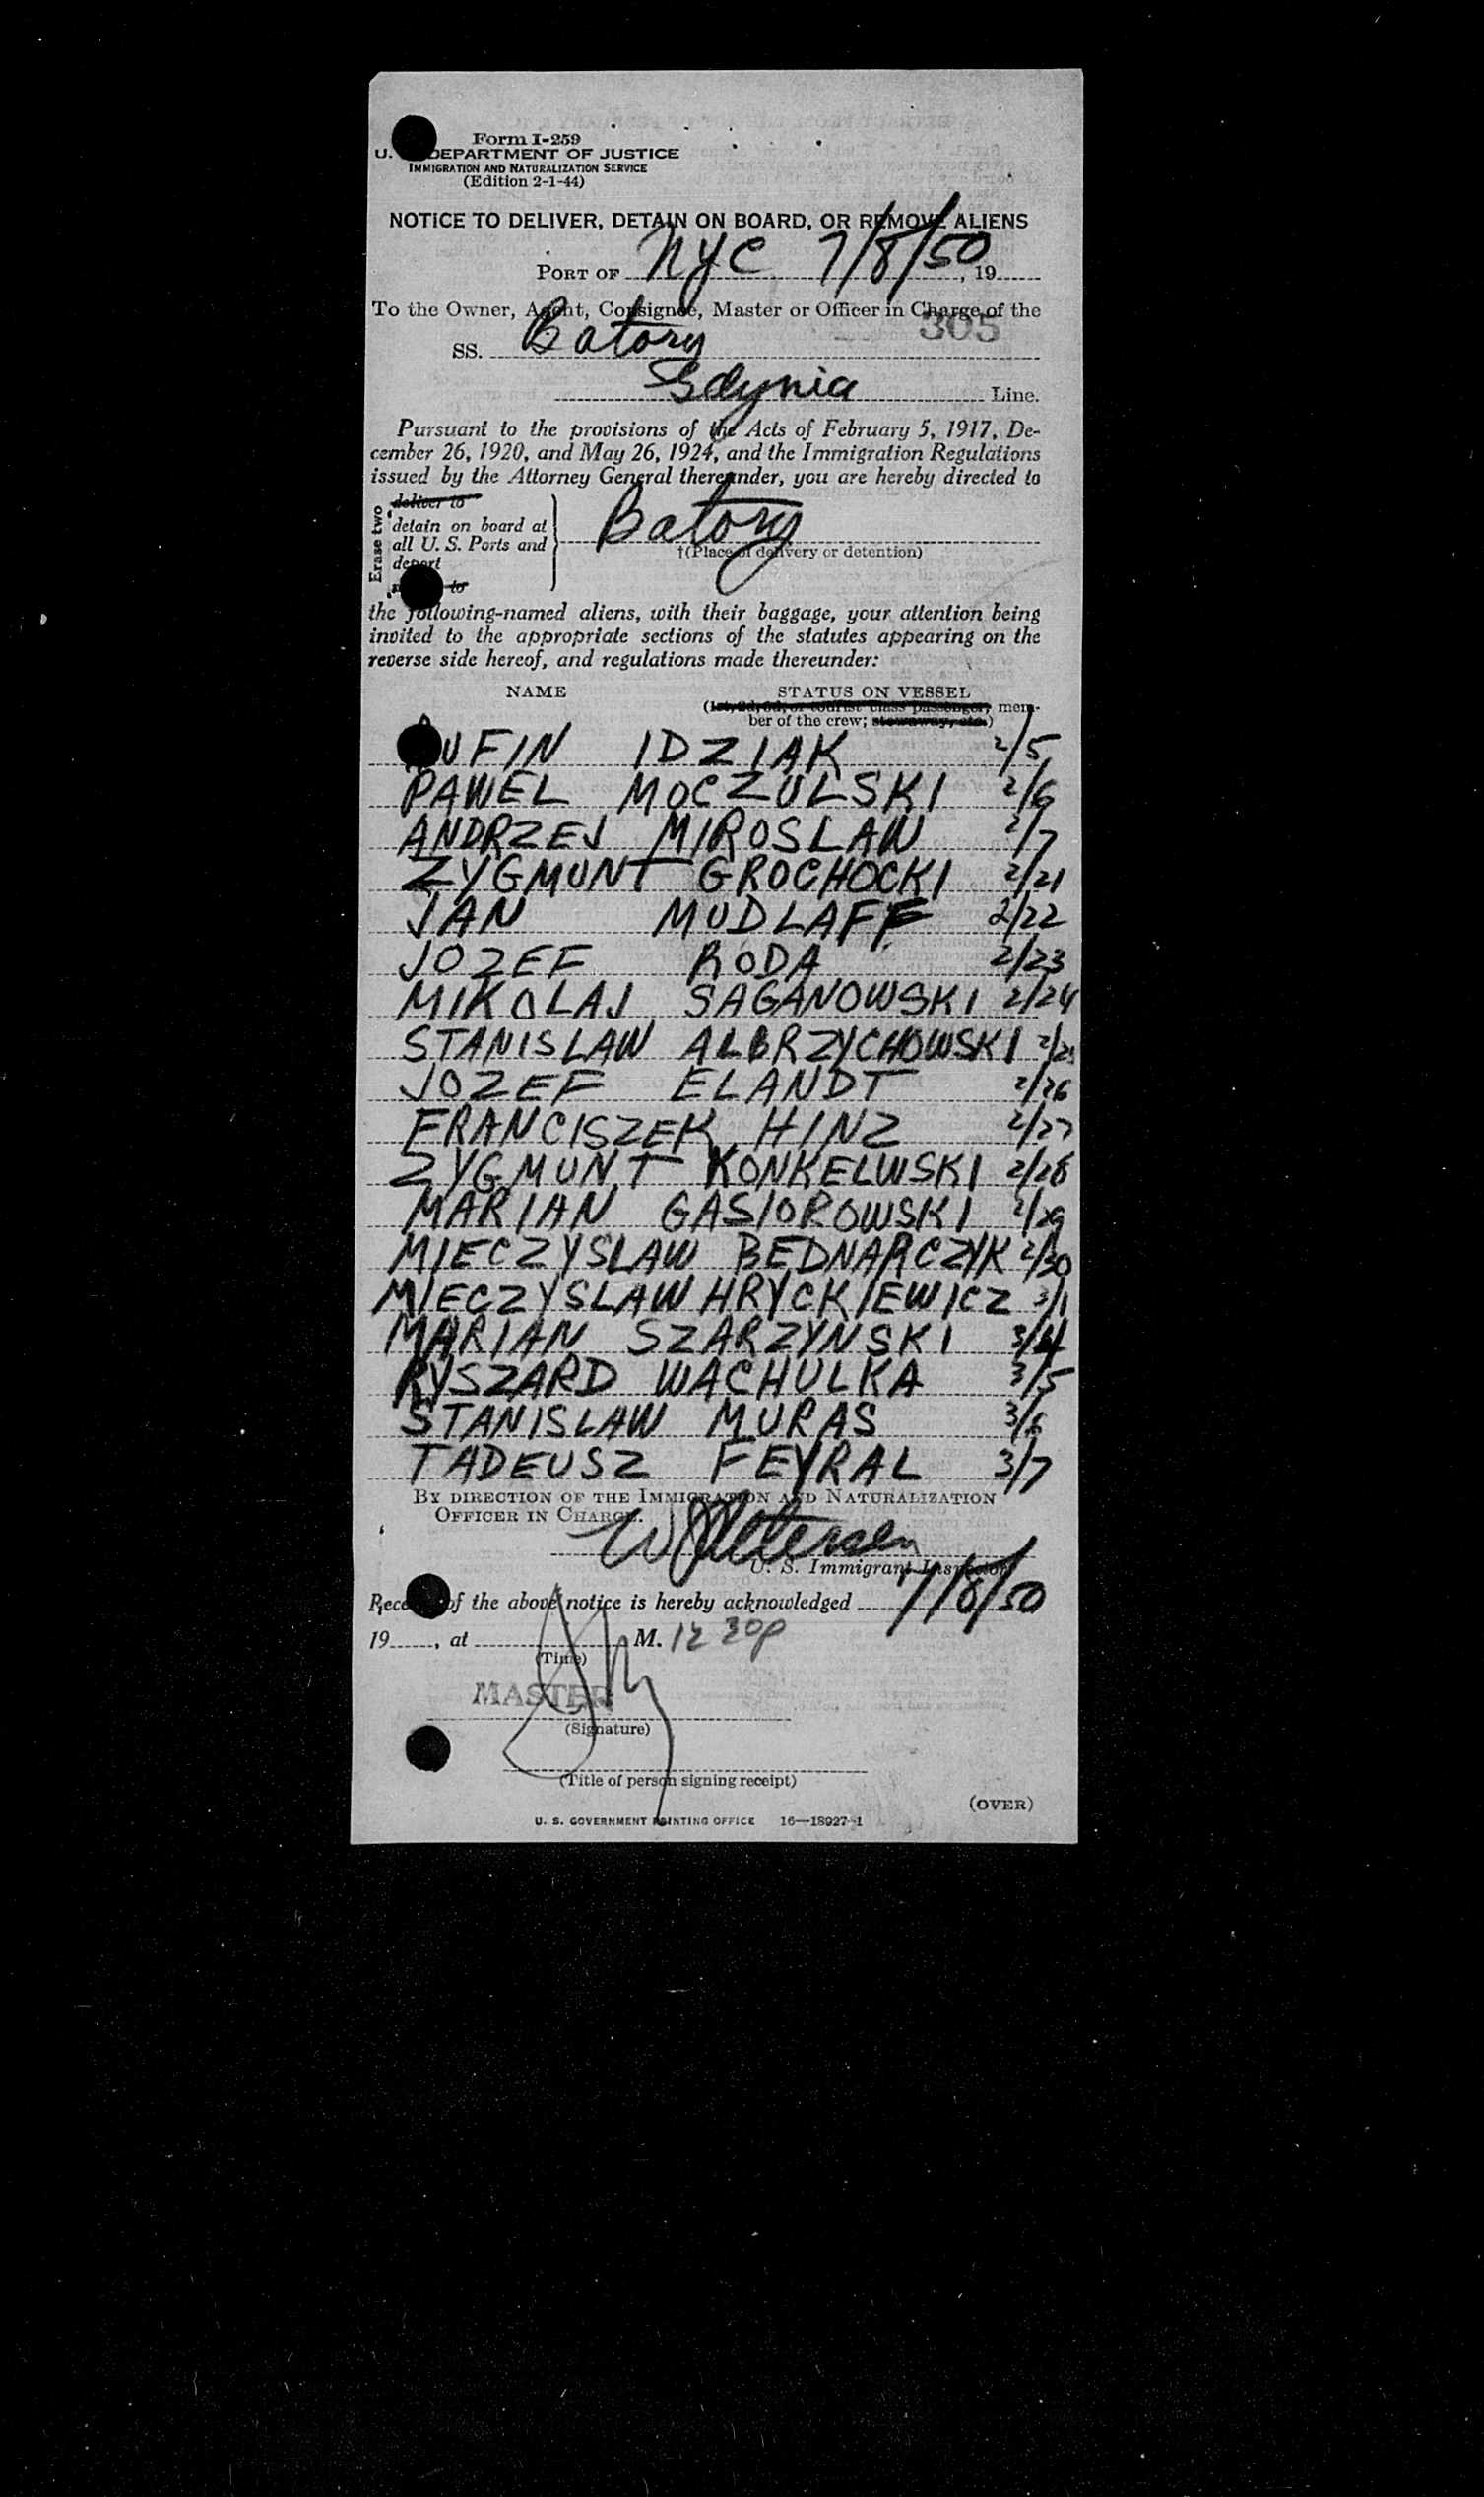 Form I-259
U. DEPARTMENT OF JUSTICE
IMMIGRATION AND NATURALIZATION SERVICE
(Edition 2-1-44)
NOTICE TO DELIVER, DETAIN ON BOARD, OR REMOVE ALIENS
PORT OF NYC 7/8/50, 19
To the Owner, Agent, Consignee, Master or Officer in Charge of the
305
SS. Batory
Gdynia Line.
Pursuant to the provisions of the Acts of February 5, 1917, De-
cember 26, 1920, and May 26, 1924, and the Immigration Regulations
issued by the Attorney General thereunder, you are hereby directed to
Erase two
deliver to
detain on board at
all U. S. Ports and
deport
to
Batory
†(Place of delivery or detention)
the following-named aliens, with their baggage, your attention being
invited to the appropriate sections of the statutes appearing on the
reverse side hereof, and regulations made thereunder:
NAME STATUS ON VESSEL
(1st, 2d, 3d, or tourist class passenger; mem-
ber of the crew; stowaway, etc.)
UFIN IDZIAK 2/5
PAWEL MOCZULSKI 2/6
ANDRZEJ MIROSLAW 2/7
ZYGMUNT GROCHOCKI 2/21
JAN MUDLAFF 2/22
JOZEF RODA 2/23
MIKOLAJ SAGANOWSKI 2/24
STANISLAW ALBRZYCHOWSKI 2/25
JOZEF ELANDT 2/26
FRANCISZEK HINZ 2/27
ZYGMUNT KONKELWSKI 2/28
MARIAN GASIOROWSKI 2/29
MIECZYSLAW BEDNARCZYK 2/30
MIECZYSLAW HRYCKIEWICZ 3/1
MARIAN SZARZYNSKI 3/4
RYSZARD WACHULKA 3/5
STANISLAW MURAS 3/6
TADEUSZ FEYRAL 3/7
BY DIRECTION OF THE IMMIGRATION AND NATURALIZATION
OFFICER IN CHARGE.
U. S. Immigrant Inspector
Rece of the above notice is hereby acknowledged 7/8/50
19, at M. 12 30p
(Time)
MASTER
(Signature)
(Title of person signing receipt)
(OVER)
U. S. GOVERNMENT PRINTING OFFICE 16—18927-1